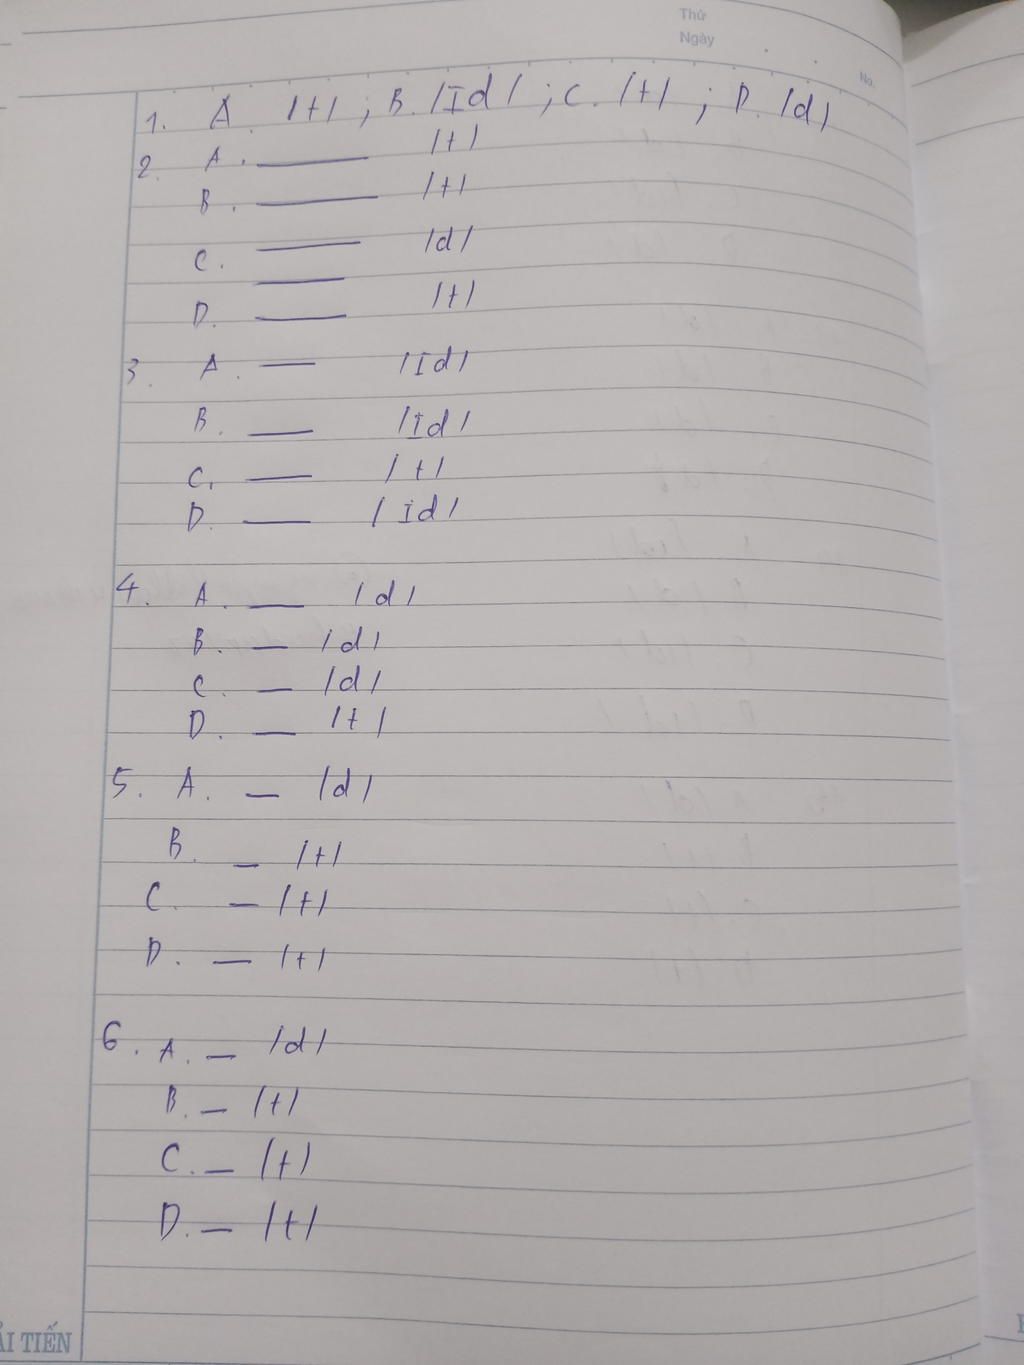 Thứ
Ngày
No.
1. A. /t/ ; B. /Id/ ; C. /t/ ; D. /d/
2. A. /t/
B. /t/
C. /d/
D. /t/
3. A. /Id/
B. /Id/
C. /t/
D. /Id/
4. A. /d/
B. /d/
C. /d/
D. /t/
5. A. /d/
B. /t/
C. /t/
D. /t/
6. A. /d/
B. /t/
C. /t/
D. /t/
ẢI TIẾN